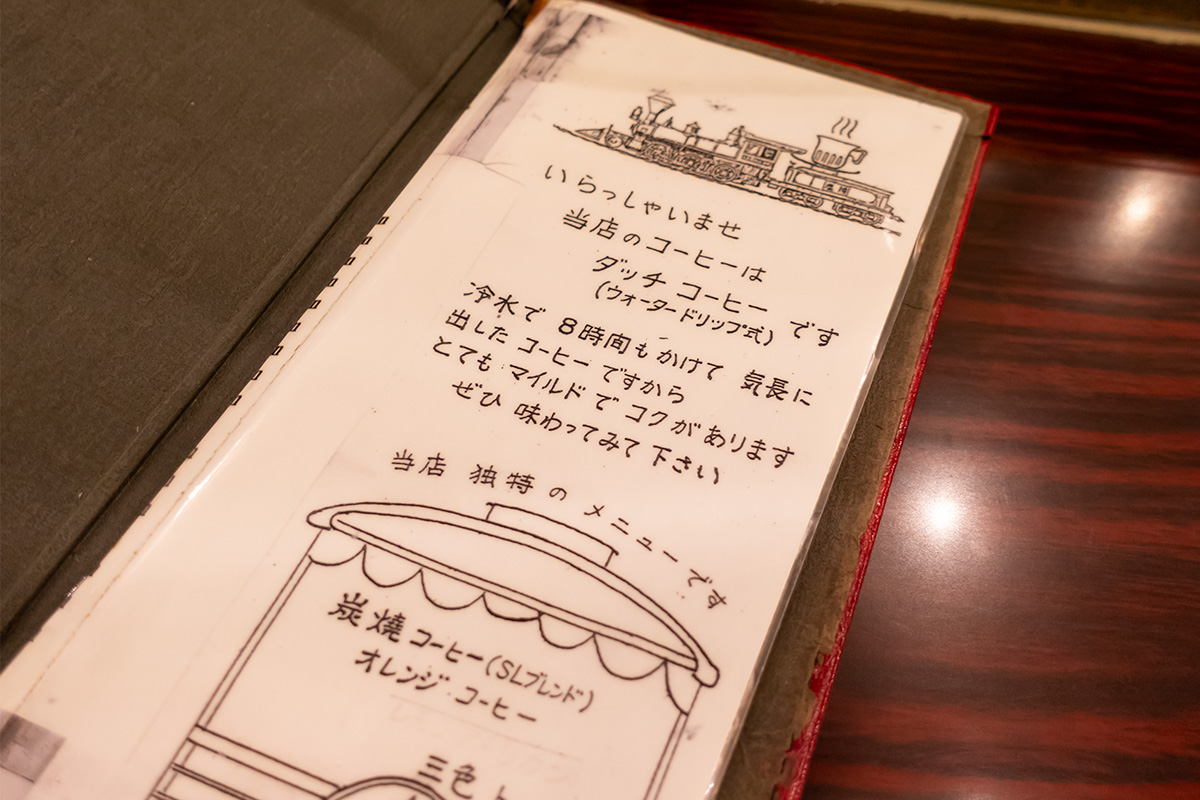 いらっしゃいませ
当店のコーヒーは
ダッチ コーヒー です
(ウォータードリップ式)
冷水で 8時間もかけて 気長に
出した コーヒー ですから
とても マイルド で コクが あります
ぜひ 味わってみて 下さい
当店 独特の メニューです
炭焼コーヒー(SLブレンド)
オレンジ・コーヒー
三色